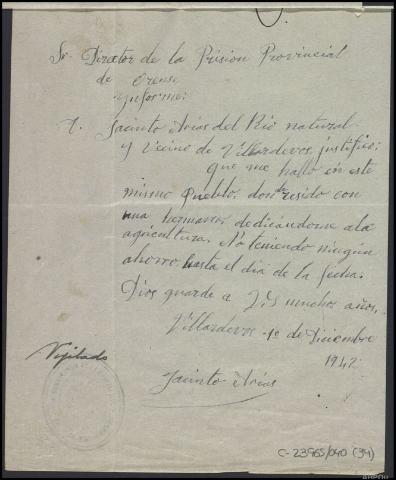 Sr. Director de la Prision Provincial
de Orense
Informe:
Jacinto Arias del Rio natural
y Vecino de Villardevos, justifico:
que me hallo en este
mismo Pueblo, donde resido con
una hermana dedicándome a la
agricultura. No teniendo ningún
ahorro hasta el día de la fecha.
Dios guarde a Vs muchos años.
Villardevos 1º de Diciembre
1942
Vigilado
Jacinto Arias
C-23965/040 (34)